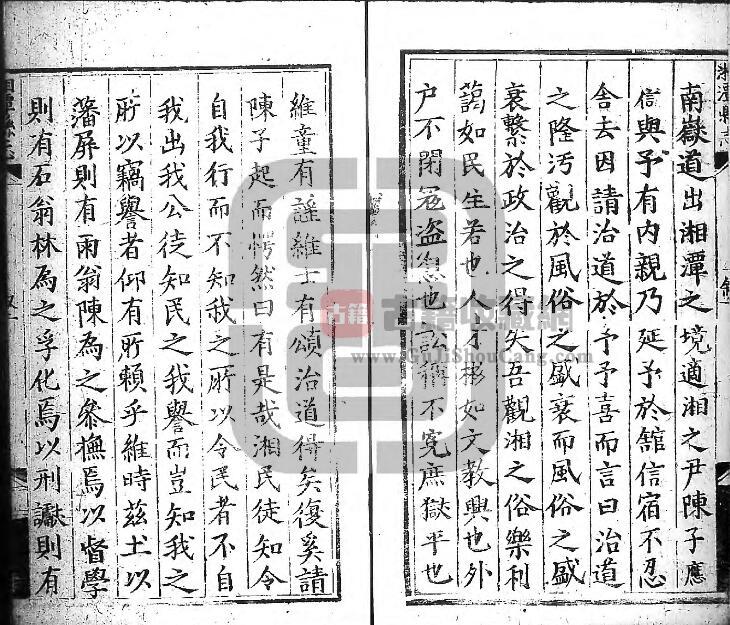 南嶽道出湘潭之境適湘之尹陳子應
信與予有内親乃延予於舘信宿不忍
舎去因請治道於予予喜而言曰治道
之隆汚觀於風俗之盛衰而風俗之盛
衰繫於政治之得失吾觀湘之俗樂利
藹如民生若也人才彬如文教興也外
户不閉冦盗息也訟不寃庶獄平也
維童有謡維士有頌治道得矣復奚請
陳子起而愕然曰有是哉湘民徒知令
自我行而不知我之所以令民者不自
我出我公徒知民之我譽而豈知我之
所以竊譽者仰有所賴乎維時兹土以
藩屏則有雨翁陳為之參撫焉以督學
則有石翁林為之孚化焉以刑讞則有
湘潭縣志
古籍收藏網
www.GuJiShouCang.com
古籍